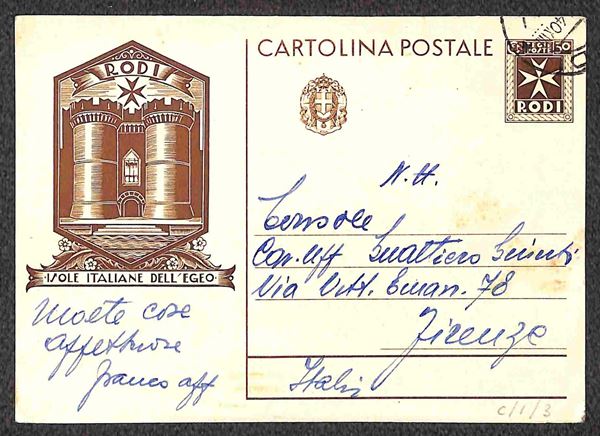 CARTOLINA POSTALE
50
RODI
RODI
ISOLE ITALIANE DELL'EGEO
N.H.
Console
Cav. Uff Gualtiero
Via Vitt. Eman. 78
Firenze
Italia
Molte cose
affettuose
Franco aff
C/1/3